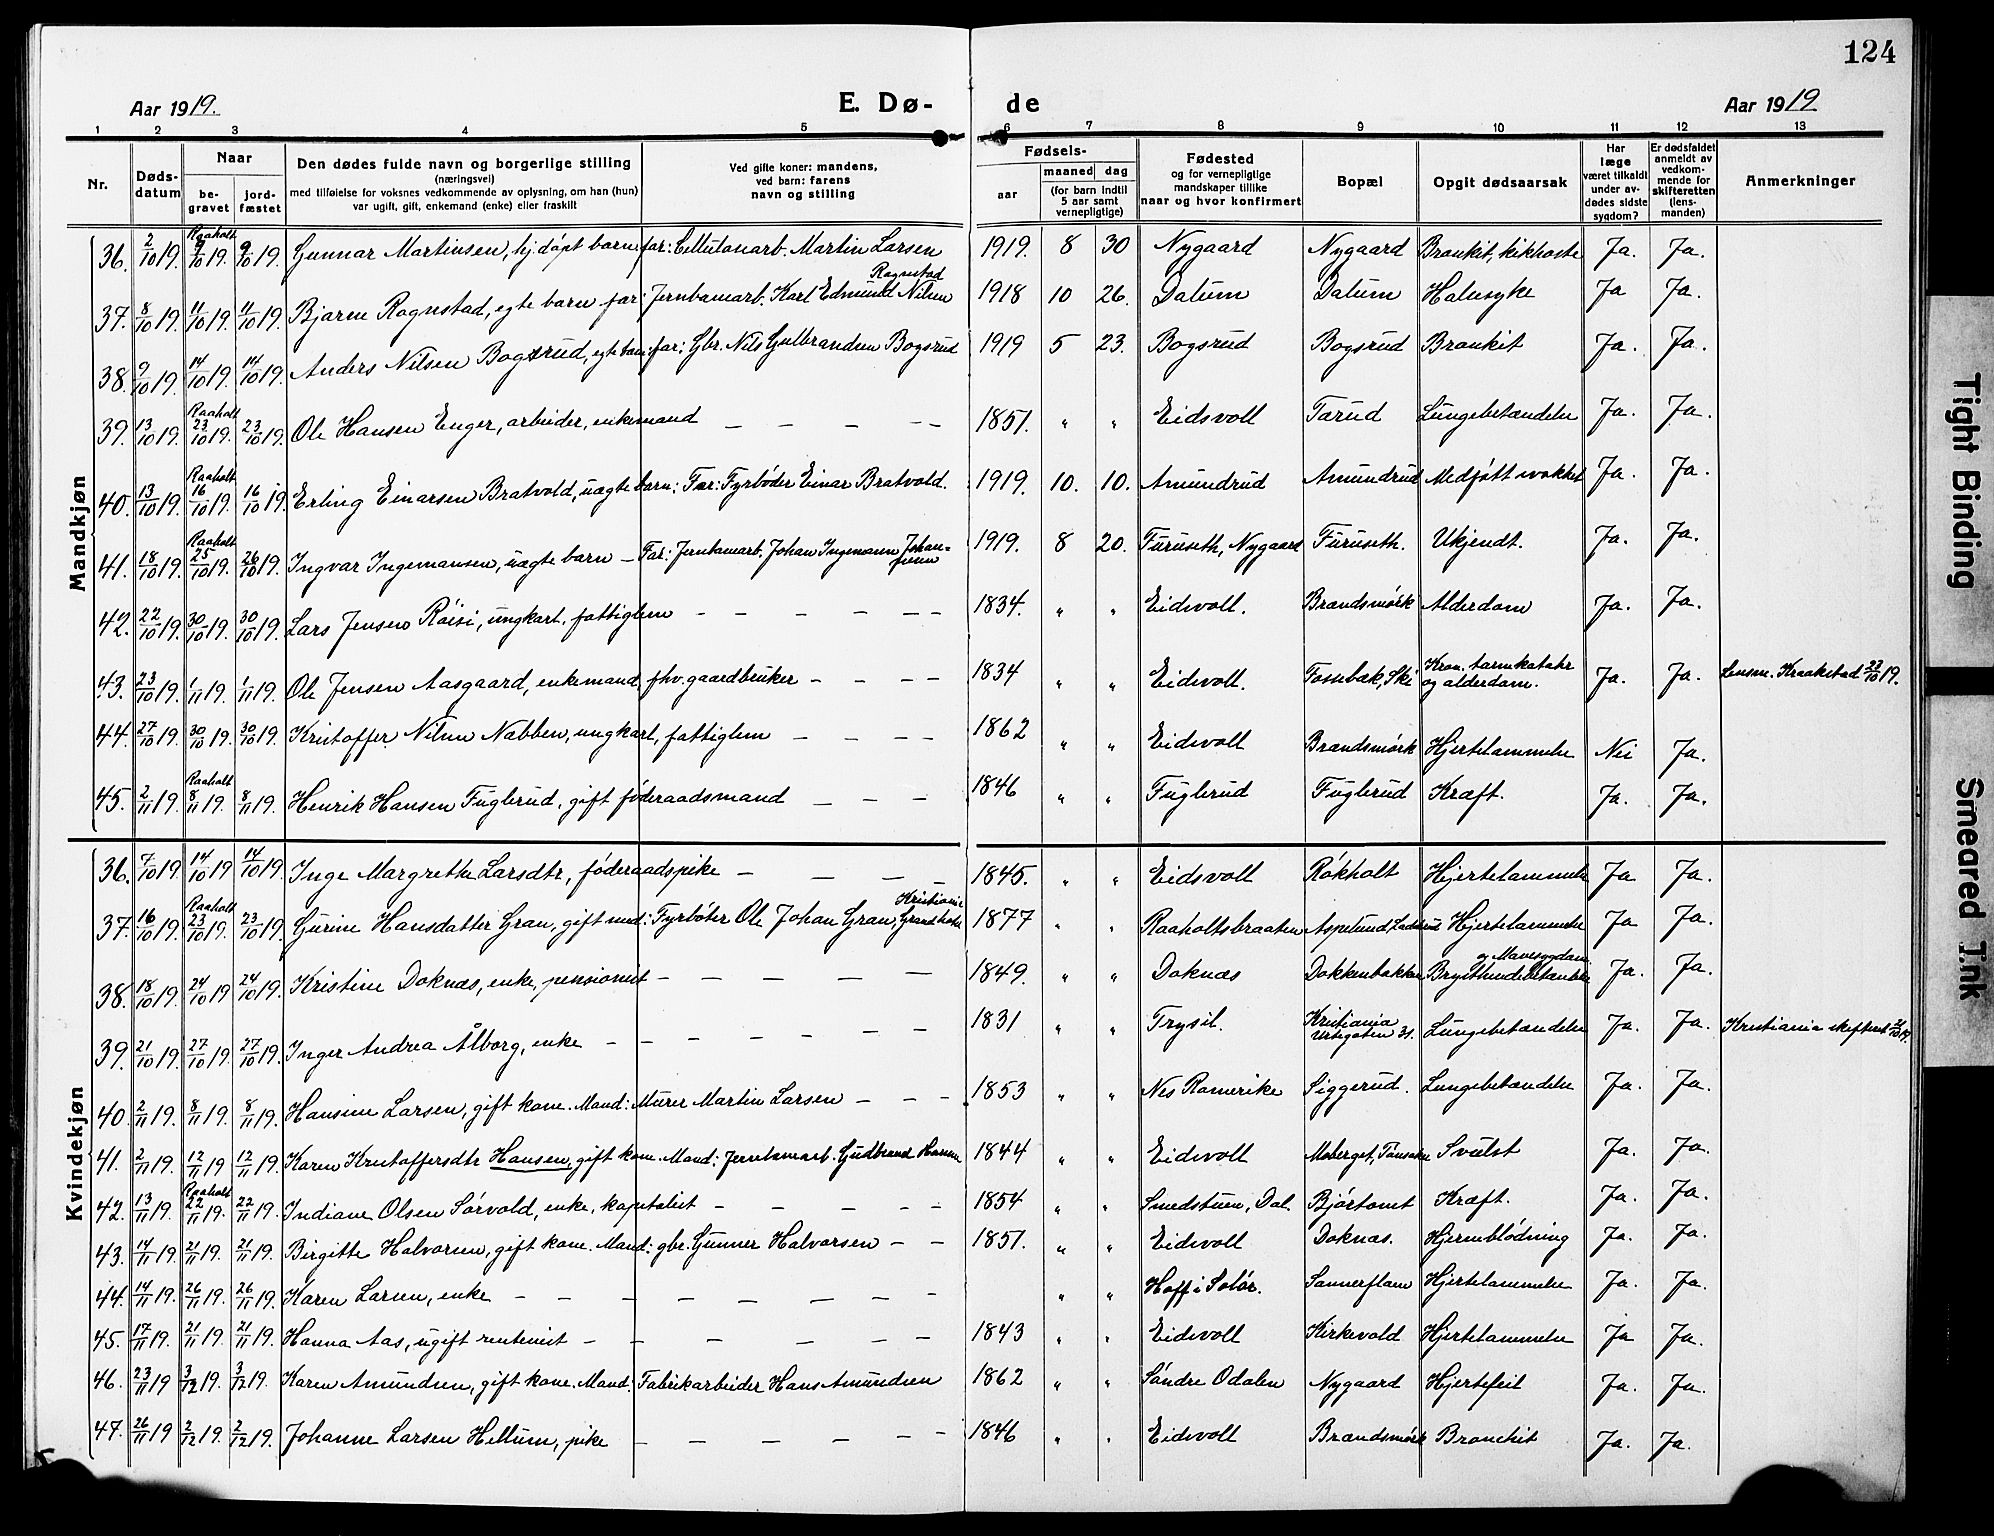 124
Aar 1919. E. Dø- de Aar 1919
1 2 3 4 5 6 7 8 9 10 11 12 13
Nr. Dødsdatum Naar begravet jordfæstet Den dødes fulde navn og borgerlige stilling (næringsvei) med tilføielse for voksnes vedkommende av oplysning, om han (hun) var ugift, gift, enkemand (enke) eller fraskilt Ved gifte koner: mandens, ved barn: farens navn og stilling Fødsels- aar maaned dag (for barn indtil 5 aar samt vernepligtige) Fødested og for vernepligtige mandskaper tillike naar og hvor konfirmert Bopæl Opgit dødsaarsak Har læge været tilkaldt under avdødes sidste sygdom? Er dødsfaldet anmeldt av vedkommende for skifteretten (lensmanden) Anmerkninger
Mandkjøn
36. 2/10 19. Raaholt 9/10 19. 9/10 19. Gunnar Martinsen, hj.døpt barn far: Cellulosearb. Martin Larsen 1919. 8 30 Nygaard Nygaard Bronkit, kikhoste Ja. Ja.
37. 8/10 19. 11/10 19. 11/10 19. Bjarne Rognstad, egte barn far: Jernbanearb. Karl Edmund Nilsen Rognstad 1918 10 26. Dalum Dalum Halssyke Ja Ja.
38. 9/10 19. 14/10 19. 14/10 19. Anders Nilsen Bogsrud, egte barn far: Gbr. Nils Gulbrandsen Bogsrud 1919 5 23. Bogsrud Bogsrud Bronkit Ja. Ja.
39. 13/10 19. Raaholt 23/10 19. 23/10 19. Ole Hansen Enger, arbeider, enkemand — — — — — 1851. " " Eidsvoll Tarud Lungebetændelse Ja. Ja.
40. 13/10 19. Raaholt 16/10 19. 16/10 19. Erling Einarsen Bratvold, uægte barn; Far: Fyrbøder Einar Bratvold. 1919. 10. 10. Amundrud Amundrud Medfødt svakhet Ja. Ja.
41. 18/10 19. Raaholt 25/10 19. 26/10 19. Ingvar Ingemansen, uægte barn — Far: Jernbanearb. Johan Ingemann Johansen 1919. 8 20. Furuseth, Nygaard Furuseth. Ukjendt. Ja. Ja.
42. 22/10 19. 30/10 19. 30/10 19. Lars Jensen Røisi, ungkart, fattiglem — — — — — 1834. " " Eidsvoll. Brandsmørk Alderdom Ja. Ja.
43. 23/10 19. 1/11 19. 1/11 19. Ole Jensen Aasgaard, enkemand, fhv. gaardbruker — — — — 1834 " " Eidsvoll. Fossbæk, Ski Kron. tarmkatahr og alderdom. Ja. Ja. Lensm. Kraakstad 22/10 19.
44. 27/10 19. 30/10 19. 30/10 19. Kristoffer Nilsen Nabben, ungkart, fattiglem — — — — 1862 " " Eidsvoll Brandsmørk Hjertelammelse Nei Ja.
45. 2/11 19. Raaholt 8/11 19. 8/11 19. Henrik Hansen Fuglerud, gift føderaadsmand — — — 1846 " " Fuglerud Fuglerud Kræft. Ja. Ja.
Kvindekjøn
36. 7/10 19. 14/10 19 14/10 19. Inge Margrethe Larsdtr, føderaadspike — — — — 1845. " " Eidsvoll Røkholt Hjertelammelse Ja Ja.
37. 16/10 19. Raaholt 23/10 19. 23/10 19. Gurine Hansdatter Gran, gift med: Fyrbøter Ole Johan Gran, Kristiania Grand hotel 1877 " " Raaholtsbraaten Aspelund, Hjertelammelse Ja Ja.
38. 18/10 19. 24/10 19 24/10 19. Kristine Doknæs, enke, pensionist — — — — — 1849. " " Doknæs Dokkenbakken Brysthindebetændelse og Mavesygdom Ja. Ja.
39. 21/10 19. 27/10 19. 27/10 19. Inger Andrea Ålborg, enke — — — — — — — 1831 " " Trysil. Kristiania Urtegaten 31. Lungebetændelse Ja. Ja. Kristiania skifteret 21/10 19.
40. 2/11 19. 8/11 19. 8/11 19. Hansine Larsen, gift kone. Mand: Murer Martin Larsen — — — 1853 " " Nes Romerike Siggerud. Lungebetændelse Ja. Ja.
41. 2/11 19. 12/11 19 12/11 19. Karen Kristoffersdtr Hansen, gift kone. Mand: Jernbanearb. Gudbrand Hansen 1844 " " Eidsvoll Moberget, Svulst Ja. Ja.
42. 13/11 19. Raaholt 22/11 19. 22/11 19. Indiane Olsen Sørvold, enke, kapitalist — — — — — 1854 " " Smedstuen, Dal. Bjørtomt Kræft. Ja. Ja.
43. 14/11 19. 21/11 19. 21/11 19. Birgitte Halvorsen, gift kone. Mand: gbr. Gunner Halvorsen — — 1851. " " Eidsvoll Doknæs. Hjerneblødning Ja. Ja.
44. 14/11 19. 26/11 19. 26/11 19. Karen Larsen, enke — — — — — — — — " " Hoff i Solør. Sannerflaen Hjertelammelse Ja. Ja.
45. 17/11 19. 21/11 19. 21/11 19. Hanna Aas, ugift rentenist — — — — — — 1843 " " Eidsvoll Kirkevold Hjertelammelse Ja Ja.
46. 23/11 19 3/12 19. 3/12 19. Karen Amundsen, gift kone. Mand: Fabrikarbeider Hans Amundsen 1862 " " Søndre Odalen Nygaard Hjertefeil Ja. Ja.
47. 26/11 19 2/12 19. 2/12 19. Johanne Larsen Hellum, pike — — — — — — 1846 " " Eidsvoll Brandsmørk Bronchit Ja. Ja.
Tight Binding
Smeared Ink